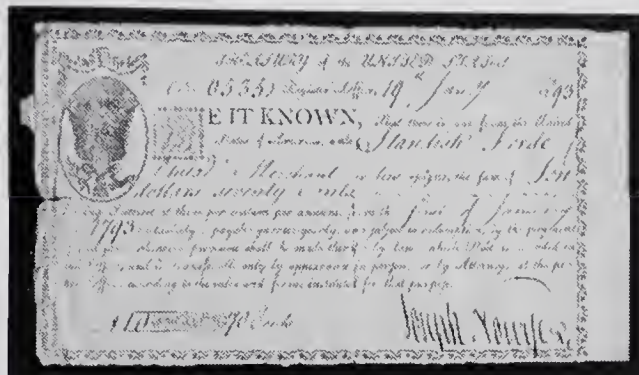 TREASURY of the UNITED STATES
No. 6535 Register's Office, 19th Jany 1793
BE IT KNOWN, That there is due from the United
States of America, unto Standish Forde
Merchant or his assigns, the sum of Ten
dollars seventy Cents
bearing Interest at three per centum per annum, from the first of January
1793 inclusively, payable quarter yearly, and subject to redemption, by the payment of
said sum, whenever provision shall be made therefor by law; which Debt is
and is transferable only by appearance in person, or by Attorney, at the proper
Office, according to the rules and forms instituted for that purpose.
Joseph Nourse